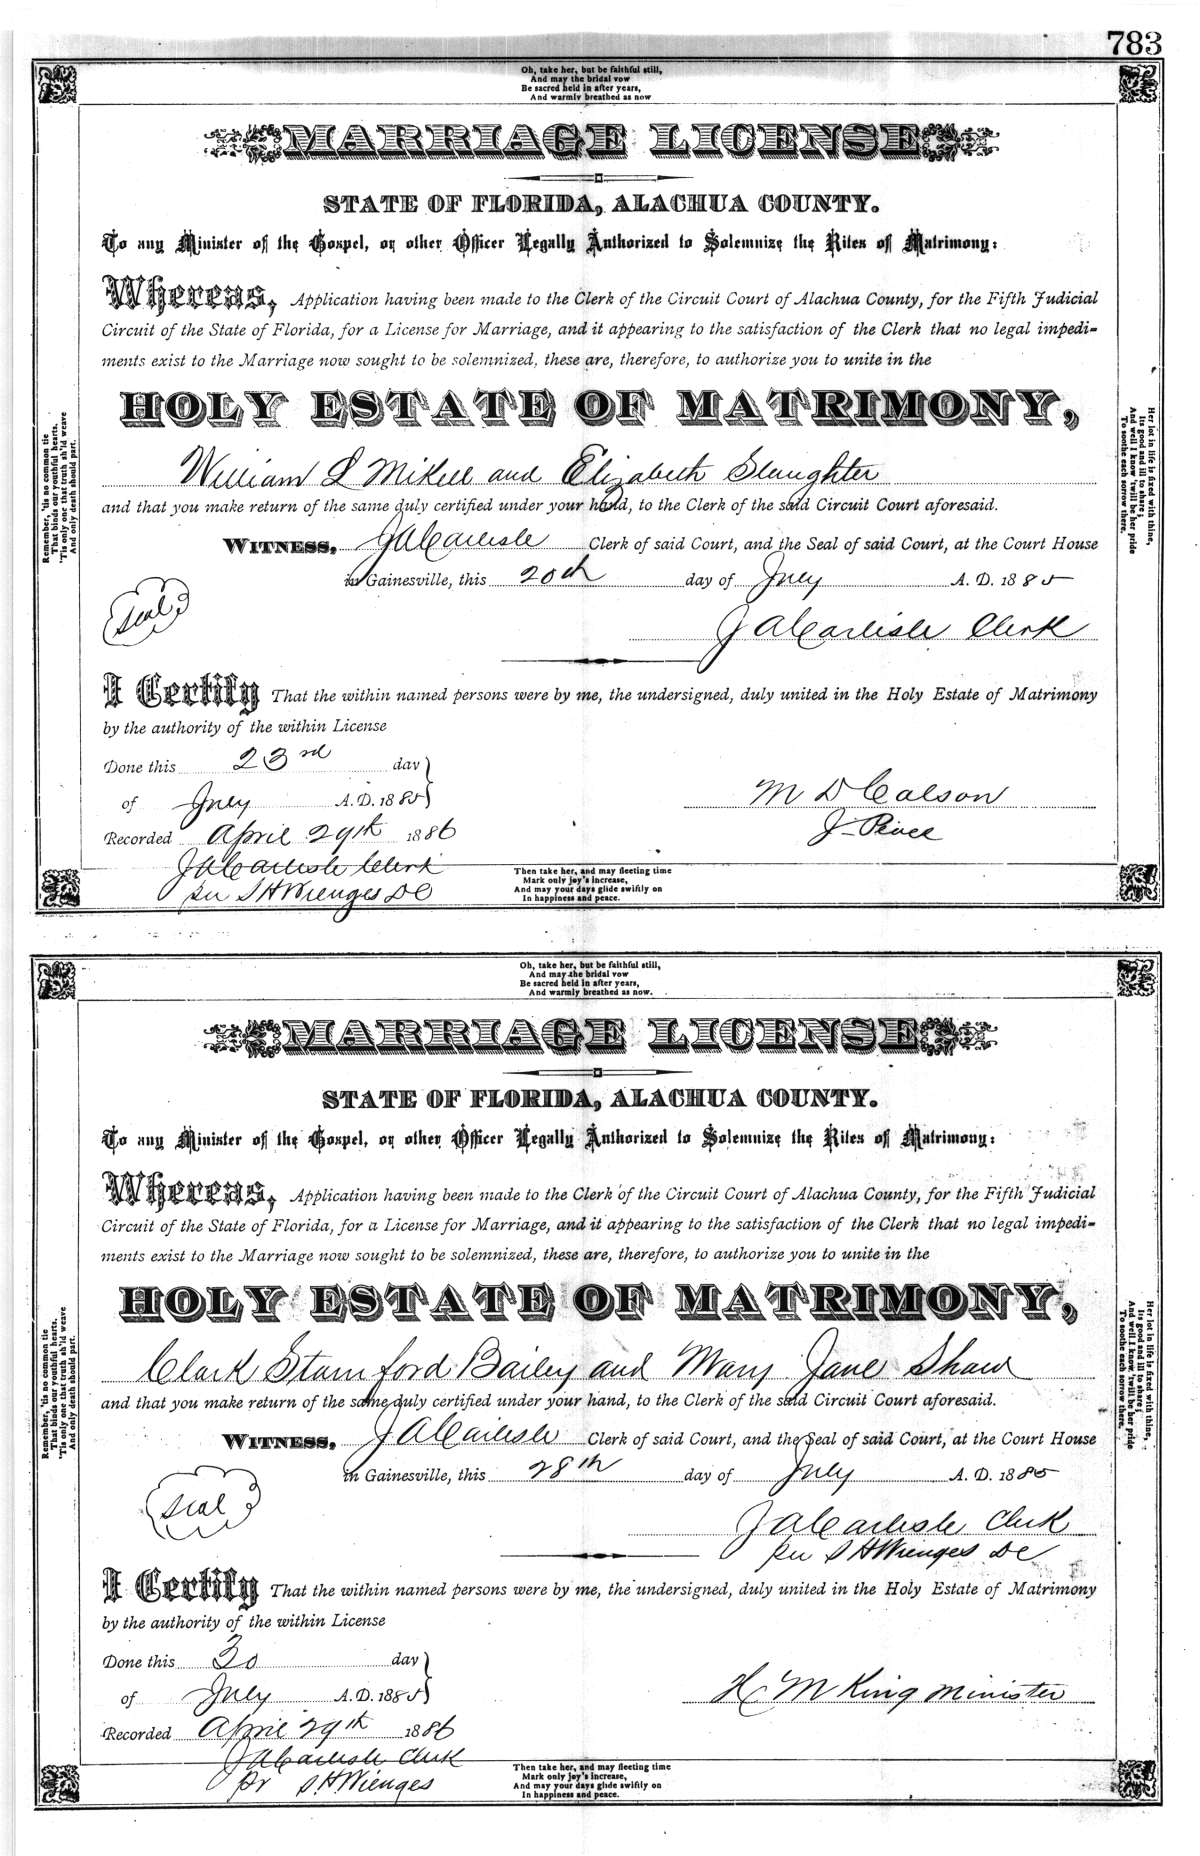 783
Oh, take her, but be faithful still,
And may the bridal vow
Be sacred held in after years,
And warmly breathed as now
MARRIAGE LICENSE
STATE OF FLORIDA, ALACHUA COUNTY.
To any Minister of the Gospel, or other Officer Legally Authorized to Solemnize the Rites of Matrimony:
Whereas, Application having been made to the Clerk of the Circuit Court of Alachua County, for the Fifth Judicial
Circuit of the State of Florida, for a License for Marriage, and it appearing to the satisfaction of the Clerk that no legal impedi-
ments exist to the Marriage now sought to be solemnized, these are, therefore, to authorize you to unite in the
HOLY ESTATE OF MATRIMONY,
William L Mikell and Elizabeth Slaughter
and that you make return of the same duly certified under your hand, to the Clerk of the said Circuit Court aforesaid.
WITNESS, J A Carlisle Clerk of said Court, and the Seal of said Court, at the Court House
in Gainesville, this 20th day of July A. D. 1885
Seal
J A Carlisle Clerk
I Certify That the within named persons were by me, the undersigned, duly united in the Holy Estate of Matrimony
by the authority of the within License
Done this 23rd day
of July A. D. 1885
M D Colson
J Peace
Recorded April 29th 1886
J A Carlisle Clerk
per S H Wienges DC
Remember, 'tis no common tie
That binds our youthful hearts,
'Tis only one that truth sh'ld weave
And only death should part.
Her lot in life is fixed with thine,
Its good and ill to share;
And well I know 'twill be her pride
To soothe each sorrow there.
Then take her, and may fleeting time
Mark only joy's increase,
And may your days glide swiftly on
In happiness and peace.
Oh, take her, but be faithful still,
And may the bridal vow
Be sacred held in after years,
And warmly breathed as now.
MARRIAGE LICENSE
STATE OF FLORIDA, ALACHUA COUNTY.
To any Minister of the Gospel, or other Officer Legally Authorized to Solemnize the Rites of Matrimony:
Whereas, Application having been made to the Clerk of the Circuit Court of Alachua County, for the Fifth Judicial
Circuit of the State of Florida, for a License for Marriage, and it appearing to the satisfaction of the Clerk that no legal impedi-
ments exist to the Marriage now sought to be solemnized, these are, therefore, to authorize you to unite in the
HOLY ESTATE OF MATRIMONY,
Clark Stamford Bailey and Mary Jane Shaw
and that you make return of the same duly certified under your hand, to the Clerk of the said Circuit Court aforesaid.
WITNESS, J A Carlisle Clerk of said Court, and the Seal of said Court, at the Court House
in Gainesville, this 28th day of July A. D. 1885
Seal
J A Carlisle Clerk
per S H Wienges DC
I Certify That the within named persons were by me, the undersigned, duly united in the Holy Estate of Matrimony
by the authority of the within License
Done this 30 day
of July A. D. 1885
H M King Minister
Recorded April 29th 1886
J A Carlisle Clerk
pr S. H. Wienges
Remember, 'tis no common tie
That binds our youthful hearts,
'Tis only one that truth sh'ld weave
And only death should part.
Her lot in life is fixed with thine,
Its good and ill to share;
And well I know 'twill be her pride
To soothe each sorrow there.
Then take her, and may fleeting time
Mark only joy's increase,
And may your days glide swiftly on
In happiness and peace.